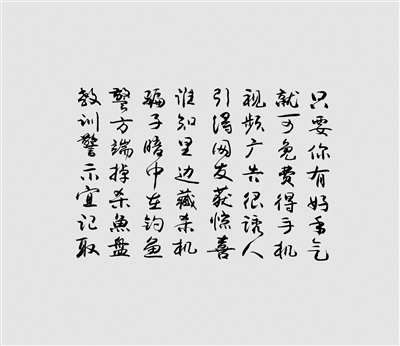 只要你有好手气
就可免费得手机
视频广告很诱人
引得网友获惊喜
谁知里边藏杀机
骗子暗中在钓鱼
警方端掉杀鱼盘
教训警示宜记取